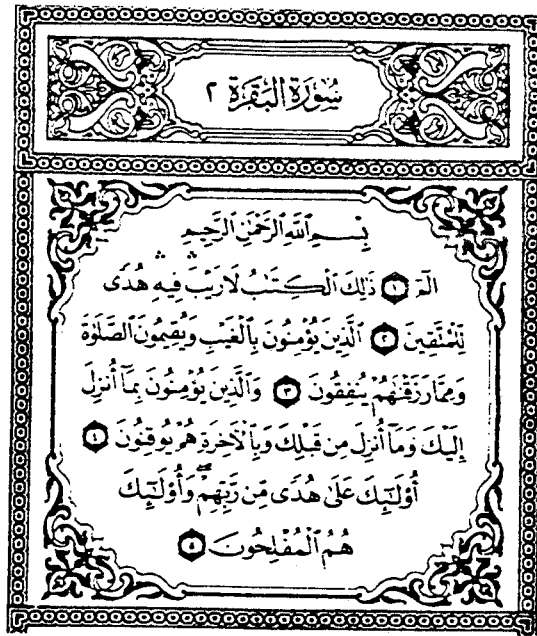 سُورَةُ البَقَرَةِ ٢
بِسْمِ اللَّهِ الرَّحْمَٰنِ الرَّحِيمِ
الٓمٓ ١ ذَٰلِكَ الْكِتَٰبُ لَا رَيْبَ فِيهِ هُدًى
لِّلْمُتَّقِينَ ٢ الَّذِينَ يُؤْمِنُونَ بِالْغَيْبِ وَيُقِيمُونَ الصَّلَوٰةَ
وَمِمَّا رَزَقْنَٰهُمْ يُنفِقُونَ ٣ وَالَّذِينَ يُؤْمِنُونَ بِمَآ أُنزِلَ
إِلَيْكَ وَمَآ أُنزِلَ مِن قَبْلِكَ وَبِالْآخِرَةِ هُمْ يُوقِنُونَ ٤
أُو۟لَٰٓئِكَ عَلَىٰ هُدًى مِّن رَّبِّهِمْ ۖ وَأُو۟لَٰٓئِكَ
هُمُ الْمُفْلِحُونَ ٥